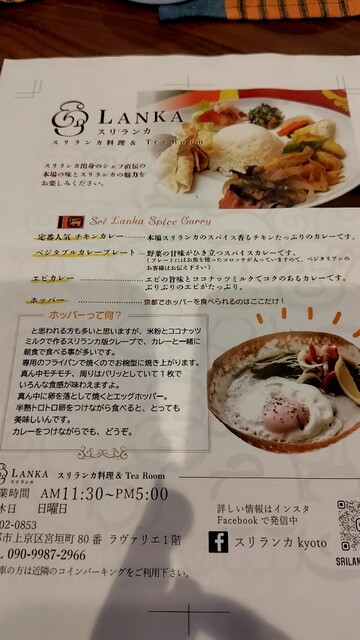 LANKA
スリランカ
スリランカ料理 & Tea Room
スリランカ出身のシェフ直伝の
本場の味とスリランカの魅力を
お楽しみください。
Sri Lanka Spice Curry
定番人気 チキンカレー ― 本場スリランカのスパイス香るチキンたっぷりのカレーです。
ベジタブルカレープレート ― 野菜の甘味がひき立つスパイスカレーです。
(プレートにはお魚を使ったコロッケが入っていますので、ベジタリアンの
お客様はお伝え下さい)
エビカレー ― エビの旨味とココナッツミルクでコクのあるカレーです。
ぷりぷりのエビがたっぷり。
ホッパー ― 京都でホッパーを食べられるのはここだけ!
ホッパーって何?
と思われる方も多いと思いますが、米粉とココナッツ
ミルクで作るスリランカ版クレープで、カレーと一緒に
朝食で食べる事が多いです。
専用のフライパンで焼くのでお椀型に焼き上がります。
真ん中モチモチ、周りはパリッとしていて1枚で
いろんな食感が味わえますよ。
真ん中に卵を落として焼くとエッグホッパー。
半熟トロトロ卵をつけながら食べると、とっても
美味しいんです。
カレーをつけながらでも、どうぞ。
LANKA スリランカ料理 & Tea Room
スリランカ
業時間 AM11:30~PM5:00
休日 日曜日
02-0853
都市上京区宮垣町80番 ラヴァリエ1階
L 090-9987-2966
車の方は近隣のコインパーキングをご利用下さい。
詳しい情報はインスタ
Facebookで発信中
スリランカ kyoto
SRILAN